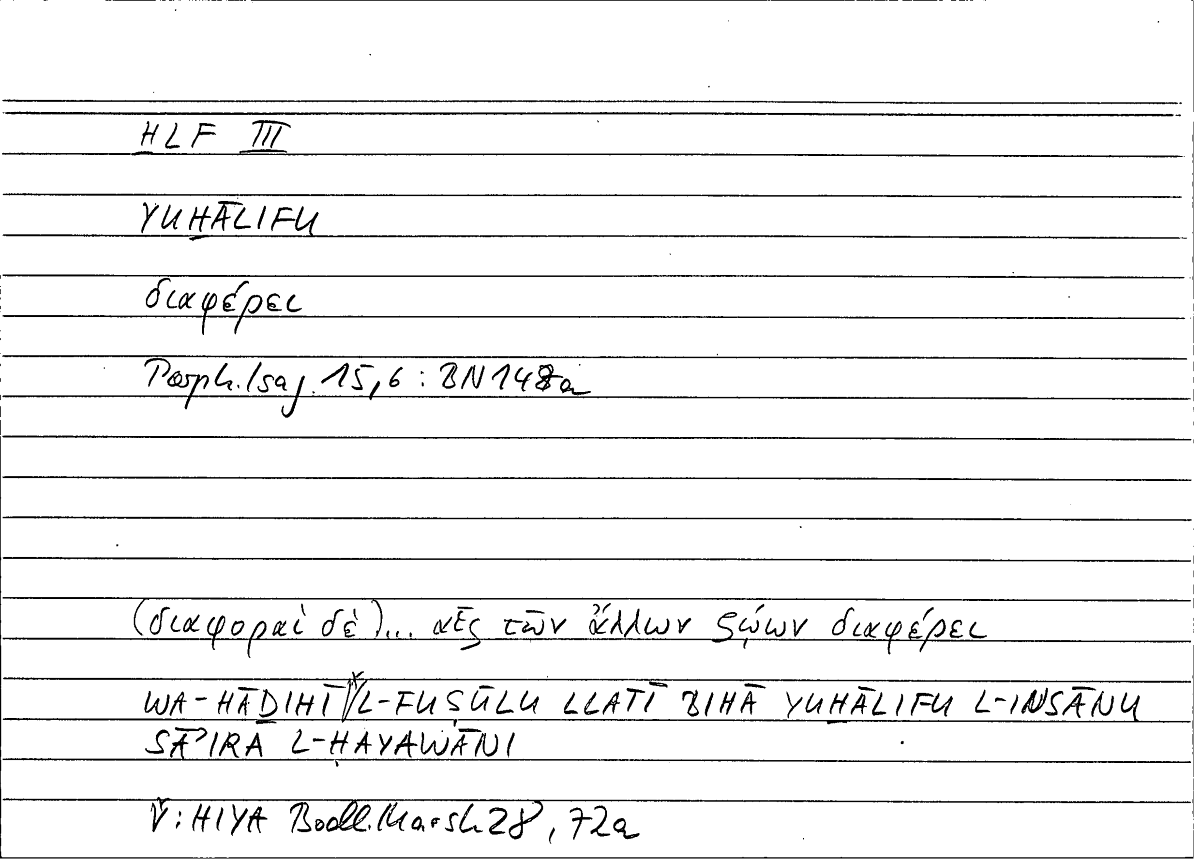 H̲LF III
YUH̲ĀLIFU
διαφέρει
Porph. Isag. 15,6 : BN 148a
(διαφοραὶ δὲ)... αἷς τῶν ἄλλων ζῴων διαφέρει
WA-HĀD̲IHĪ ꜒L-FUṢŪLU LLATĪ BIHĀ YUH̲ĀLIFU L-INSĀNU
SĀʾIRA L-ḤAYAWĀNI
꜒: HIYA Bodl. Marsh 28, 72a